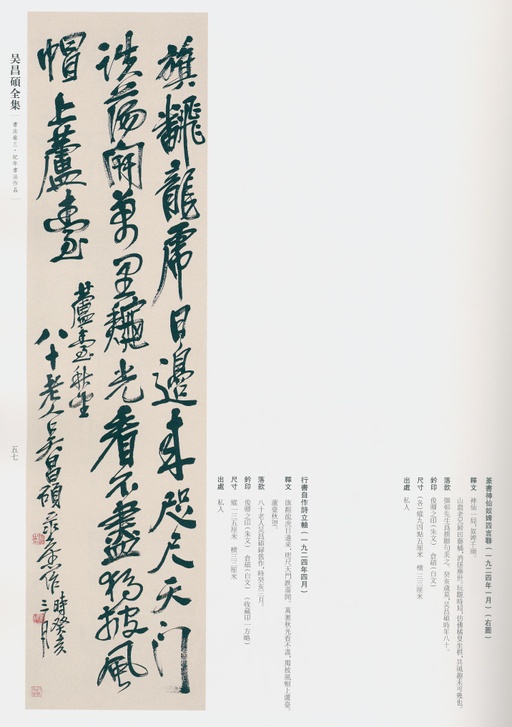 篆書神仙奴婢四言聯（一九二四年一月）（右圖）
釋文
落款
鈐印 俊卿之印（朱文） 倉碩（白文）
尺寸 （各）縱九四點五厘米 橫二三厘米
出處 私人
行書自作詩立軸（一九二四年四月）
釋文 旗翻龍虎日邊來，咫尺天門詄蕩開。萬里秋光看不盡，獨披風帽上蘆臺。
蘆臺秋望。
落款 八十老人吳昌碩錄舊作，時癸亥三月。
鈐印 俊卿之印（朱文） 倉碩（白文） （收藏印一方略）
尺寸 縱一三五厘米 橫三三厘米
出處 私人
旗翻龍虎日邊來咫尺天門
詄蕩開萬里秋光看不盡獨披風
帽上蘆臺
蘆臺秋望
八十老人吳昌碩錄舊作時癸亥
三月
吴昌碩全集
書法卷三·紀年書法作品
五七